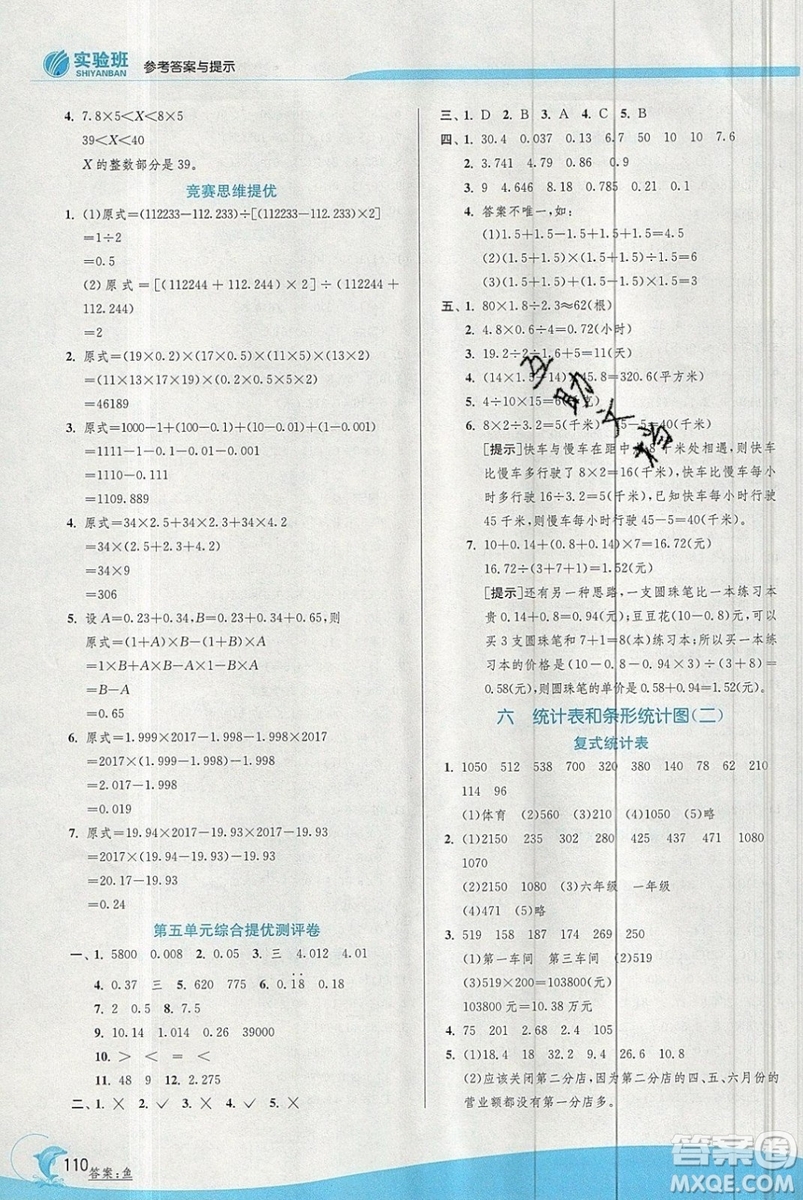 实验班
SHIYANBAN
参考答案与提示
4. 7.8×5<X<8×5
39<X<40
X的整数部分是39。
竞赛思维提优
1. (1)原式=(112233-112.233)÷[(112233-112.233)×2]
=1÷2
=0.5
(2)原式=[(112244+112.244)×2]÷(112244+
112.244)
=2
2. 原式=(19×0.2)×(17×0.5)×(11×5)×(13×2)
=(11×13×17×19)×(0.2×0.5×5×2)
=46189
3. 原式=1000-1+(100-0.1)+(10-0.01)+(1-0.001)
=1111-(1+0.1+0.01+0.001)
=1110-0.111
=1109.889
4. 原式=34×2.5+34×2+34×4.5
=34×(2.5+2+4.5)
=34×9
=306
5. 设A=0.23+0.34,B=0.23+0.34+0.65,则
原式=(1+A)×B-(1+B)×A
=1×B+A×B-1×A-B×A
=B-A
=0.65
6. 原式=1.999×2017-1.998×2017-1.998
=2017×(1.999-1.998)-1.998
=2017×0.001-1.998
=2.017-1.998
=0.019
7. 原式=19.94×2017-19.93×2017-19.93
=2017×(19.94-19.93)-19.93
=20.17-19.93
=0.24
第五单元综合提优测评卷
一、1. 5800 0.008 2. 0.05 3. 三 4.012 4.01
4. 0.37 三 5. 620 775 6. 0.1̇8̇ 0.18
7. 2 0.5 8. 7.5
9. 10.14 1.014 0.26 39000
10. > < = <
11. 48 9 12. 2.275
二、1. × 2. ✓ 3. × 4. × 5. ×
三、1. D 2. B 3. A 4. C 5. B
四、1. 30.4 0.037 0.13 50 10 10 7.6
2. 3.741 4.86 0.79 0.86
3. 9 4.646 8.18 0.785 0.21 2
4. 答案不唯一,如:
(1)1.5+1.5-1.5+1.5+1.5=4.5
(2)(1.5+1.5+1.5)×(1.5÷1.5)=4.5
(3)(1.5+1.5)÷(1.5+1.5)×1.5=1.5
五、1. 80×1.8÷2.3≈62(根)
2. 4.8×0.6÷4=0.72(小时)
3. 19.2÷2÷1.6+5=11(天)
4. (14×1.5+14)×45.8=320.6(平方米)
5. 4÷10×15=6(千克)
6. 8×2÷3.2=5(千米) 45-5=40(千米)
[提示]快车与慢车在距中点8千米处相遇,则快车
比慢车多行驶了8×2=16(千米),快车每小时比慢
车多行驶16÷3.2=5(千米),已知快车每小时行驶
45千米,则慢车每小时行驶45-5=40(千米)。
7. 10+0.14+0.94×7=16.72(元)
16.72÷(3+7+1)=1.52(元)
[提示]还有另一种思路,一支圆珠笔比一本练习本
贵0.14+0.8=0.94(元);豆豆花(10-0.8)元可以
买3支圆珠笔和7+1=8(本)练习本;所以买一本练
习本的价格是(10-0.8-0.94×3)÷(3+8)=
0.58(元),则圆珠笔的单价是0.58+0.94=1.52(元)。
六 统计表和条形统计图(二)
复式统计表
1. 1050 512 538 700 320 380 140 78 62 210
114 96
(1)体育 (2)560 (3)210 (4)1050 (5)略
2. (1)2150 235 302 280 425 437 471 1080
1070
(2)2150 1080 (3)六年级 一年级
(4)471 (5)略
3. 519 158 187 174 269 250
(1)第一车间 第三车间 (2)519
(3)519×200=103800(元)
103800元=10.38万元
4. 75 201 2.68 2.4 105
5. (1)18.4 18 32.4 9.4 26.6 10.8
(2)应该关闭第二分店,因为第二分店四、五、六月份的
营业额都没有第一分店多。
互助文档
110
答案:鱼
答案圈
MXQE.COM